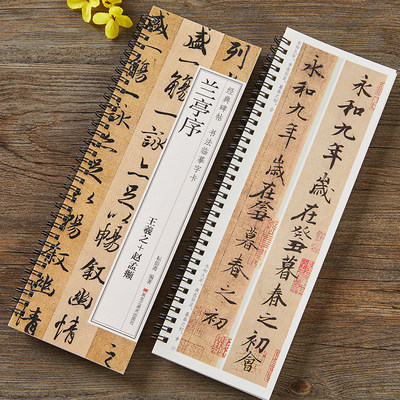 列
盛一觴一詠亦足以暢叙幽情
盛一觴一詠亦足以暢叙幽情
之
经典碑帖 书法临摹字卡
兰亭序
王羲之+赵孟頫
永和九年歲在癸丑暮春之初會
永和九年歲在癸丑暮春之初